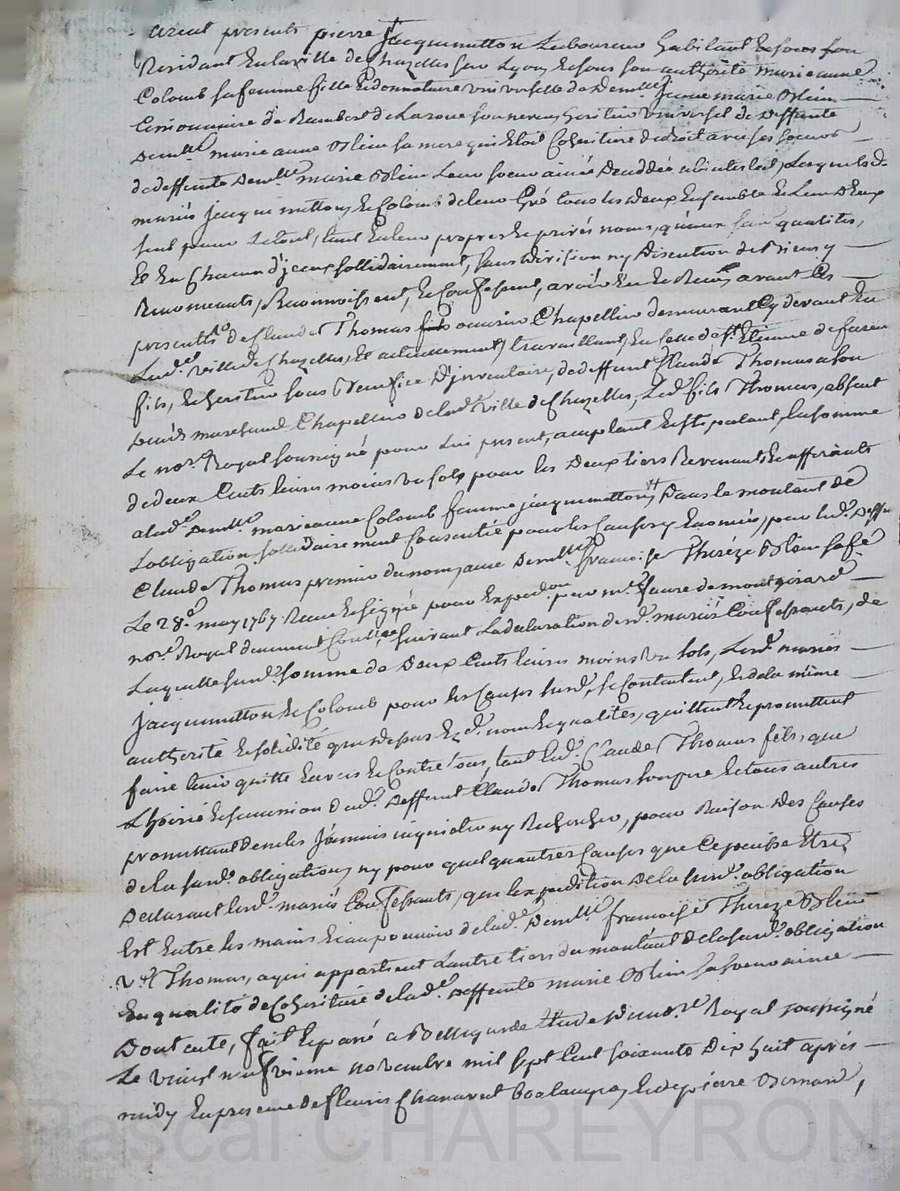 urent presents pierre Jacquemetton Laboureur habitant Et
Residant En la ville de Chazelles sur Lyon, Et sous son authorité marie anne
Colomb sa femme fille Et donnataire universelle de Demlle Jeane marie Blein
de Rambert de Laroue son neveu heritier universel de deffunte
Demlle marie anne Blein sa mere qui Etoit Coheritiere de droit avec ses soeurs
de deffunte Demlle marie Blein Leur soeur ainée Decedée abintestat, Lesquels d.
mariés Jacquemetton, Et Colomb de leur Gré tous les deux Ensemble Et L'un d'Eux
seul pour Le tout, tant En leur propre Et privés noms, qu'aux qualités,
Et En Chacun d'jceux sollidairement, sans division ny Discution de Biens y
Renoncants, Reconnoissent, Et Confessent, avoir Eu Et Reçu avant Ces
presentes de Claude Thomas fils ouvrier Chapellier demeurant Cy devant En
Lad. ville de Chazelles, Et actuellement travaillant En Celle de st. Etienne de furan
fils, Et heritier sous Benefice D'jnventaire, de deffunt Claude Thomas a son
vivant marchand Chapellier de lad. ville de Chazelles, Led. fils Thomas, absent
Le nore. Royal soussigné pour Lui present, acceptant Et stipulant, La somme
de deux Cents livres moins un sols pour les Deux tiers Revenants Et afferants
a lad. Demlle. marie anne Colomb femme jacquemetton, Dans le montant de
L'obligation sollidairement Consentie pour les Causes y Enoncées, par led. deffunt
Claude Thomas premier du nom, aux Demlles francoise Thereze Blein
Le 28e. may 1767. Reçue Et signée pour Expedon. par me. faure de montgirard
nore. Royal duement Contllée suivant La declaration desd. mariés Confessants, de
Laquelle susd. somme de Deux Cents livres moins un sols, Lesd. mariés
Jacquemetton Et Colomb pour les Causes susd., se Contentent, Et de la même
authorité Et solidité que dessus Ezd. noms Et qualités, quittent Et promettent
faire tenir quitte Envers Et Contre tous, tant Led. Claude Thomas fils, que
L'hoirie Et succession dud. deffunt Claude Thomas son pere Et tous autres
promettant de ne les Jamais inquietter ny Rechercher, pour Raison des Causes
de la susd. obligation, ny pour quelqu'autres Causes que Ce puisse Etre,
Declarant lesd. mariés Confessants, que L'expedition de la susd. obligation
Est Entre les mains Et au pouvoir de lad. Demlle francoise Thereze Blein
ve. Thomas, a qui appartient L'autre tiers du montant de la susd. obligation
En qualité de Coheritiere de lad. deffunte marie Blein sa soeur ainée
Dont acte, fait Et passé a Bellegarde Etude du nore. Royal soussigné
Le vingt neufvieme novembre mil sept Cent soixante Dix huit après
midy En presence de fleury Chanavat boulanger, Et de pierre Bernard,
Pascal CHAREYRON